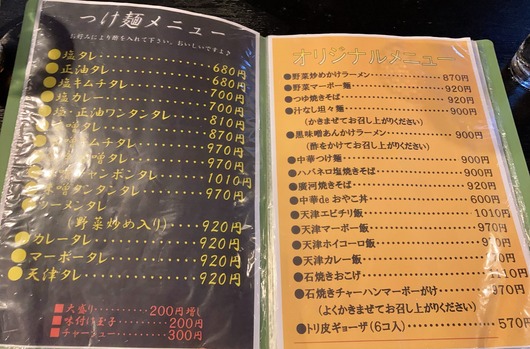 つけ麺メニュー
お好みにより酢を入れて下さい。おいしいです♪
●塩タレ 680円
●正油タレ 660円
●塩キムチタレ 700円
●塩カレー 700円
●塩・正油ワンタンタレ 810円
噌タレ 870円
キムチタレ 970円
噌タレ 970円
チャンポンタレ 1010円
味噌タンタンタレ 970円
ソーメンタレ
(野菜炒め入り) 920円
●カレータレ 920円
●マーボータレ 920円
●天津タレ 920円
■大盛り 200円増し
■味付け玉子 200円
■チャーシュー 300円
オリジナルメニュー
●野菜炒めかけラーメン 870円
●野菜マーボー麺 920円
●つゆ焼きそば 920円
●汁なし坦々麺 900円
(かきまぜてお召し上がりください)
●黒味噌あんかけラーメン 900円
(酢をかけてお召し上がりください)
●中華つけ麺 900円
●ハバネロ塩焼きそば 900円
●廣河焼きそば 920円
●中華de おやこ丼 600円
●天津エビチリ飯 1010円
●天津マーボー飯 970円
●天津ホイコーロ飯 970円
●天津カレー飯 970円
●石焼きおこげ 1110円
●石焼きチャーハンマーボーがけ 970円
(よくかきまぜてお召し上がりください)
●トリ皮ギョーザ(6コ入) 570円